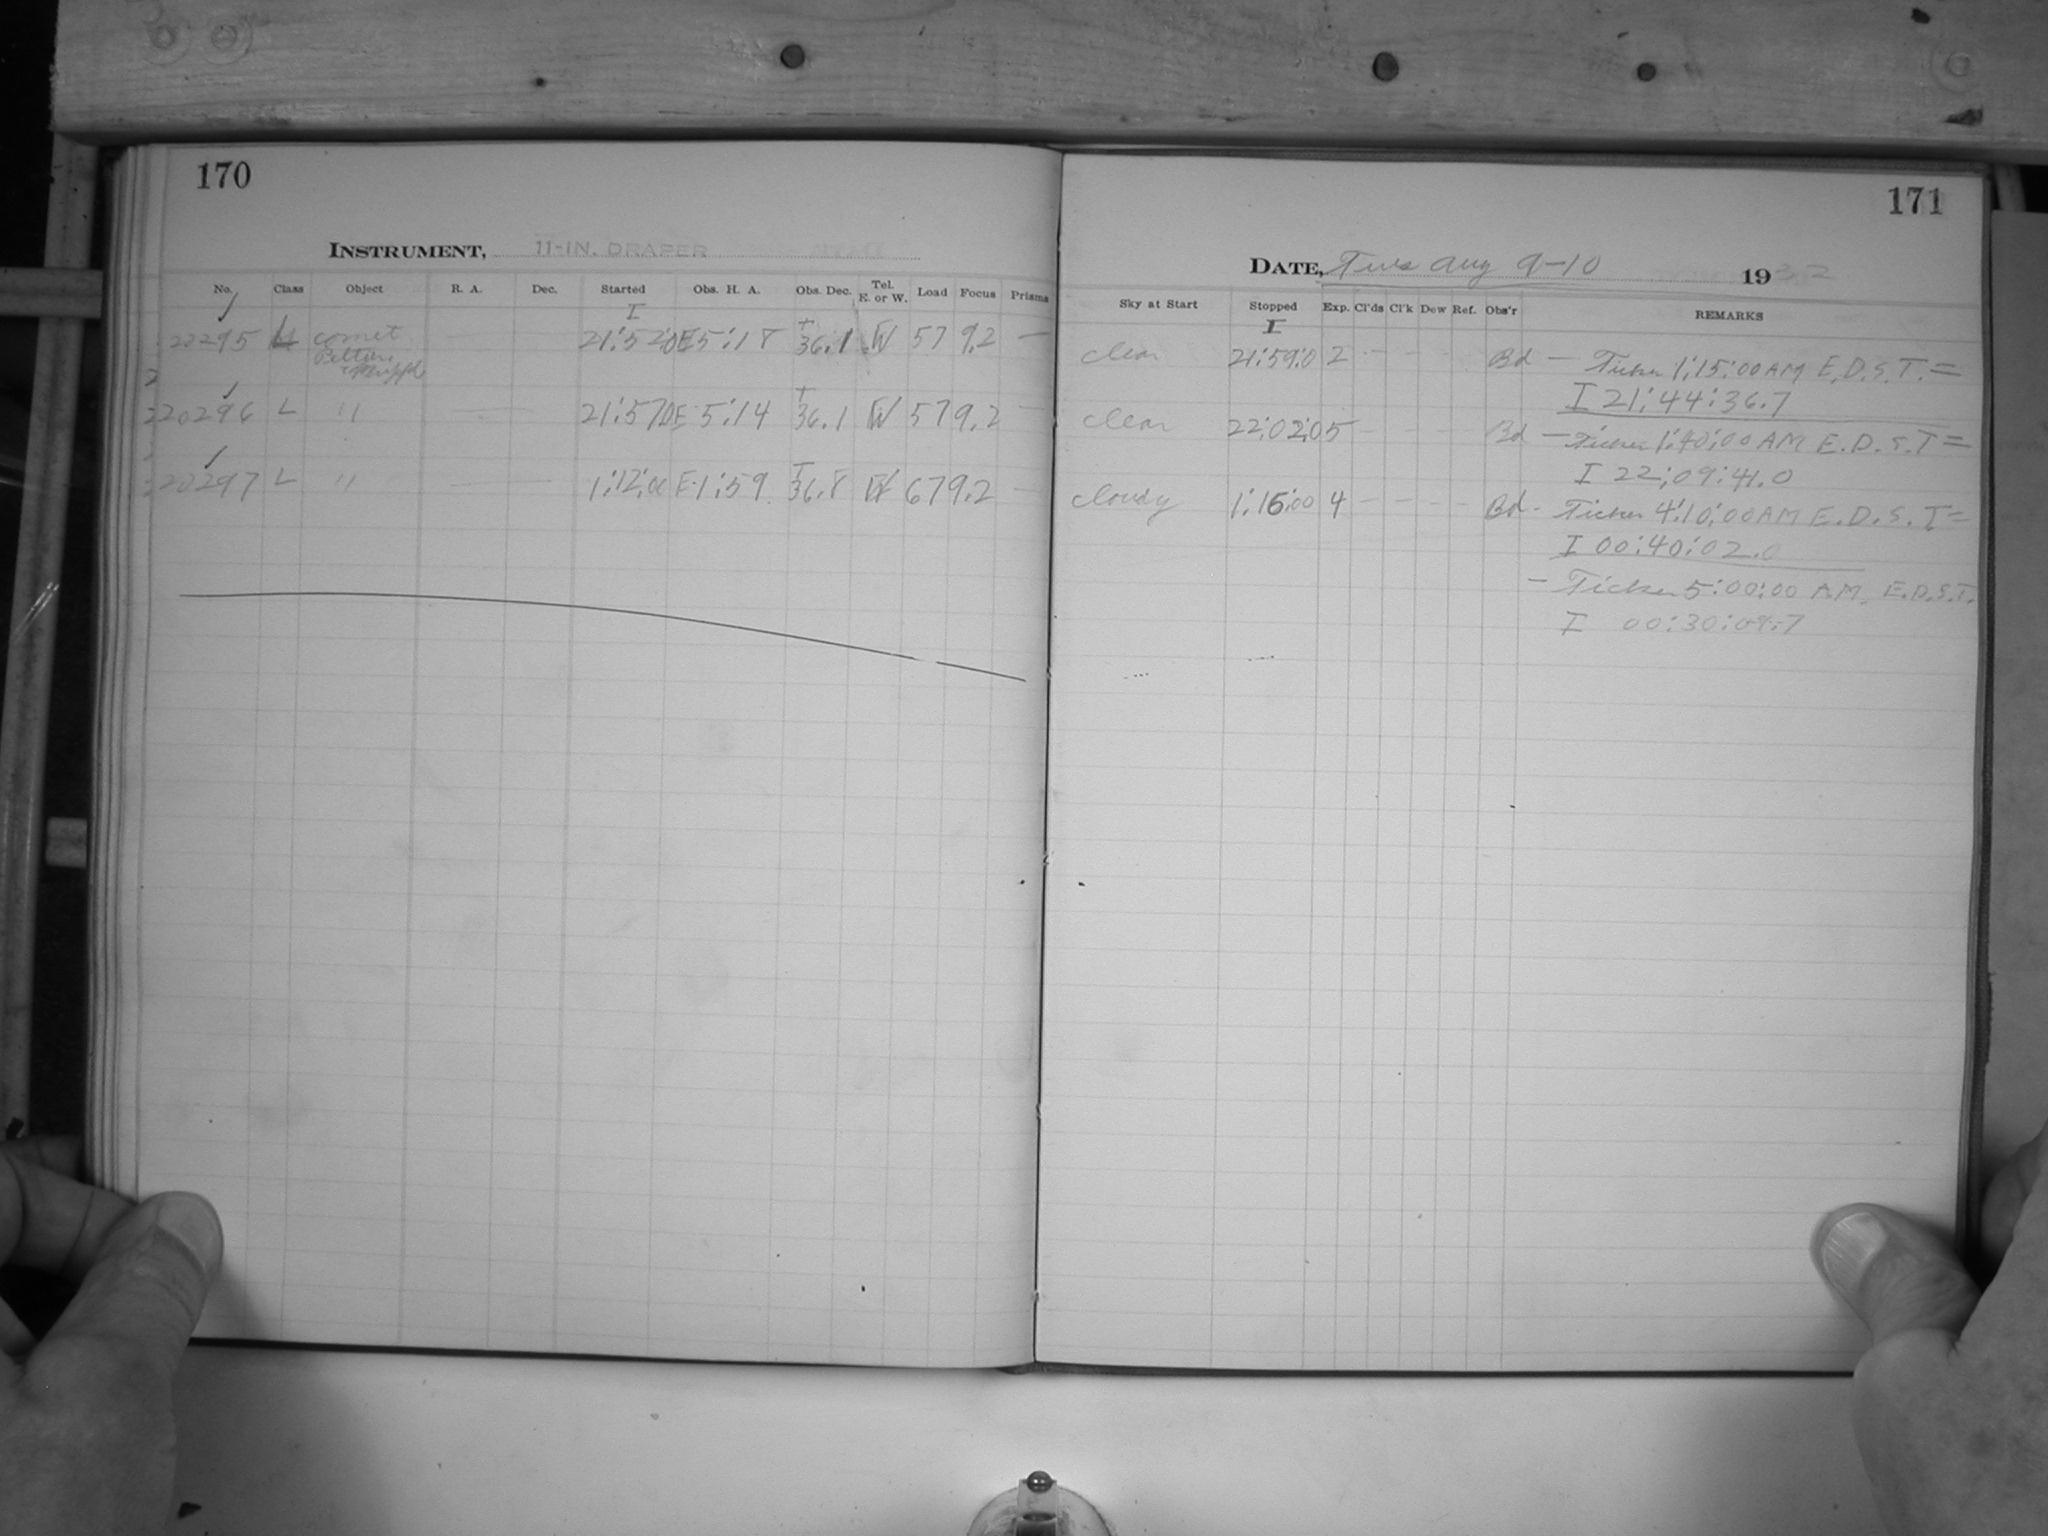 170
INSTRUMENT, 11-IN. DRAPER
No. Class Object R. A. Dec. Started Obs. H. A. Obs. Dec. Tel. E. or W. Load Focus Prisms
I
20295 L comet — — 21:52:0 E 5:18 +36.1 W 57 9.2 —
Peltier
220296 L " — — 21:57:0 E 5:14 +36.1 W 57 9.2 —
20297 L " — — 1:12:00 E 1:59 +36.8 W 67 9.2 —
171
DATE, Tues Aug 9-10 1932
Sky at Start Stopped Exp. Cl'ds Cl'k Dew Ref. Obs'r REMARKS
I
clear 21:59:0 2 - - - - Bd — Ticker 1:15:00 AM E.D.S.T. =
I 21:44:36.7
clear 22:02:0 5 - - - - Bd — Ticker 1:40:00 AM E.D.S.T =
I 22:09:41.0
cloudy 1:16:00 4 - - - - Bd - Ticker 4:10:00 AM E.D.S.T =
I 00:40:02.0
- Ticker 5:00:00 AM. E.D.S.T.
I 00:30:09.7